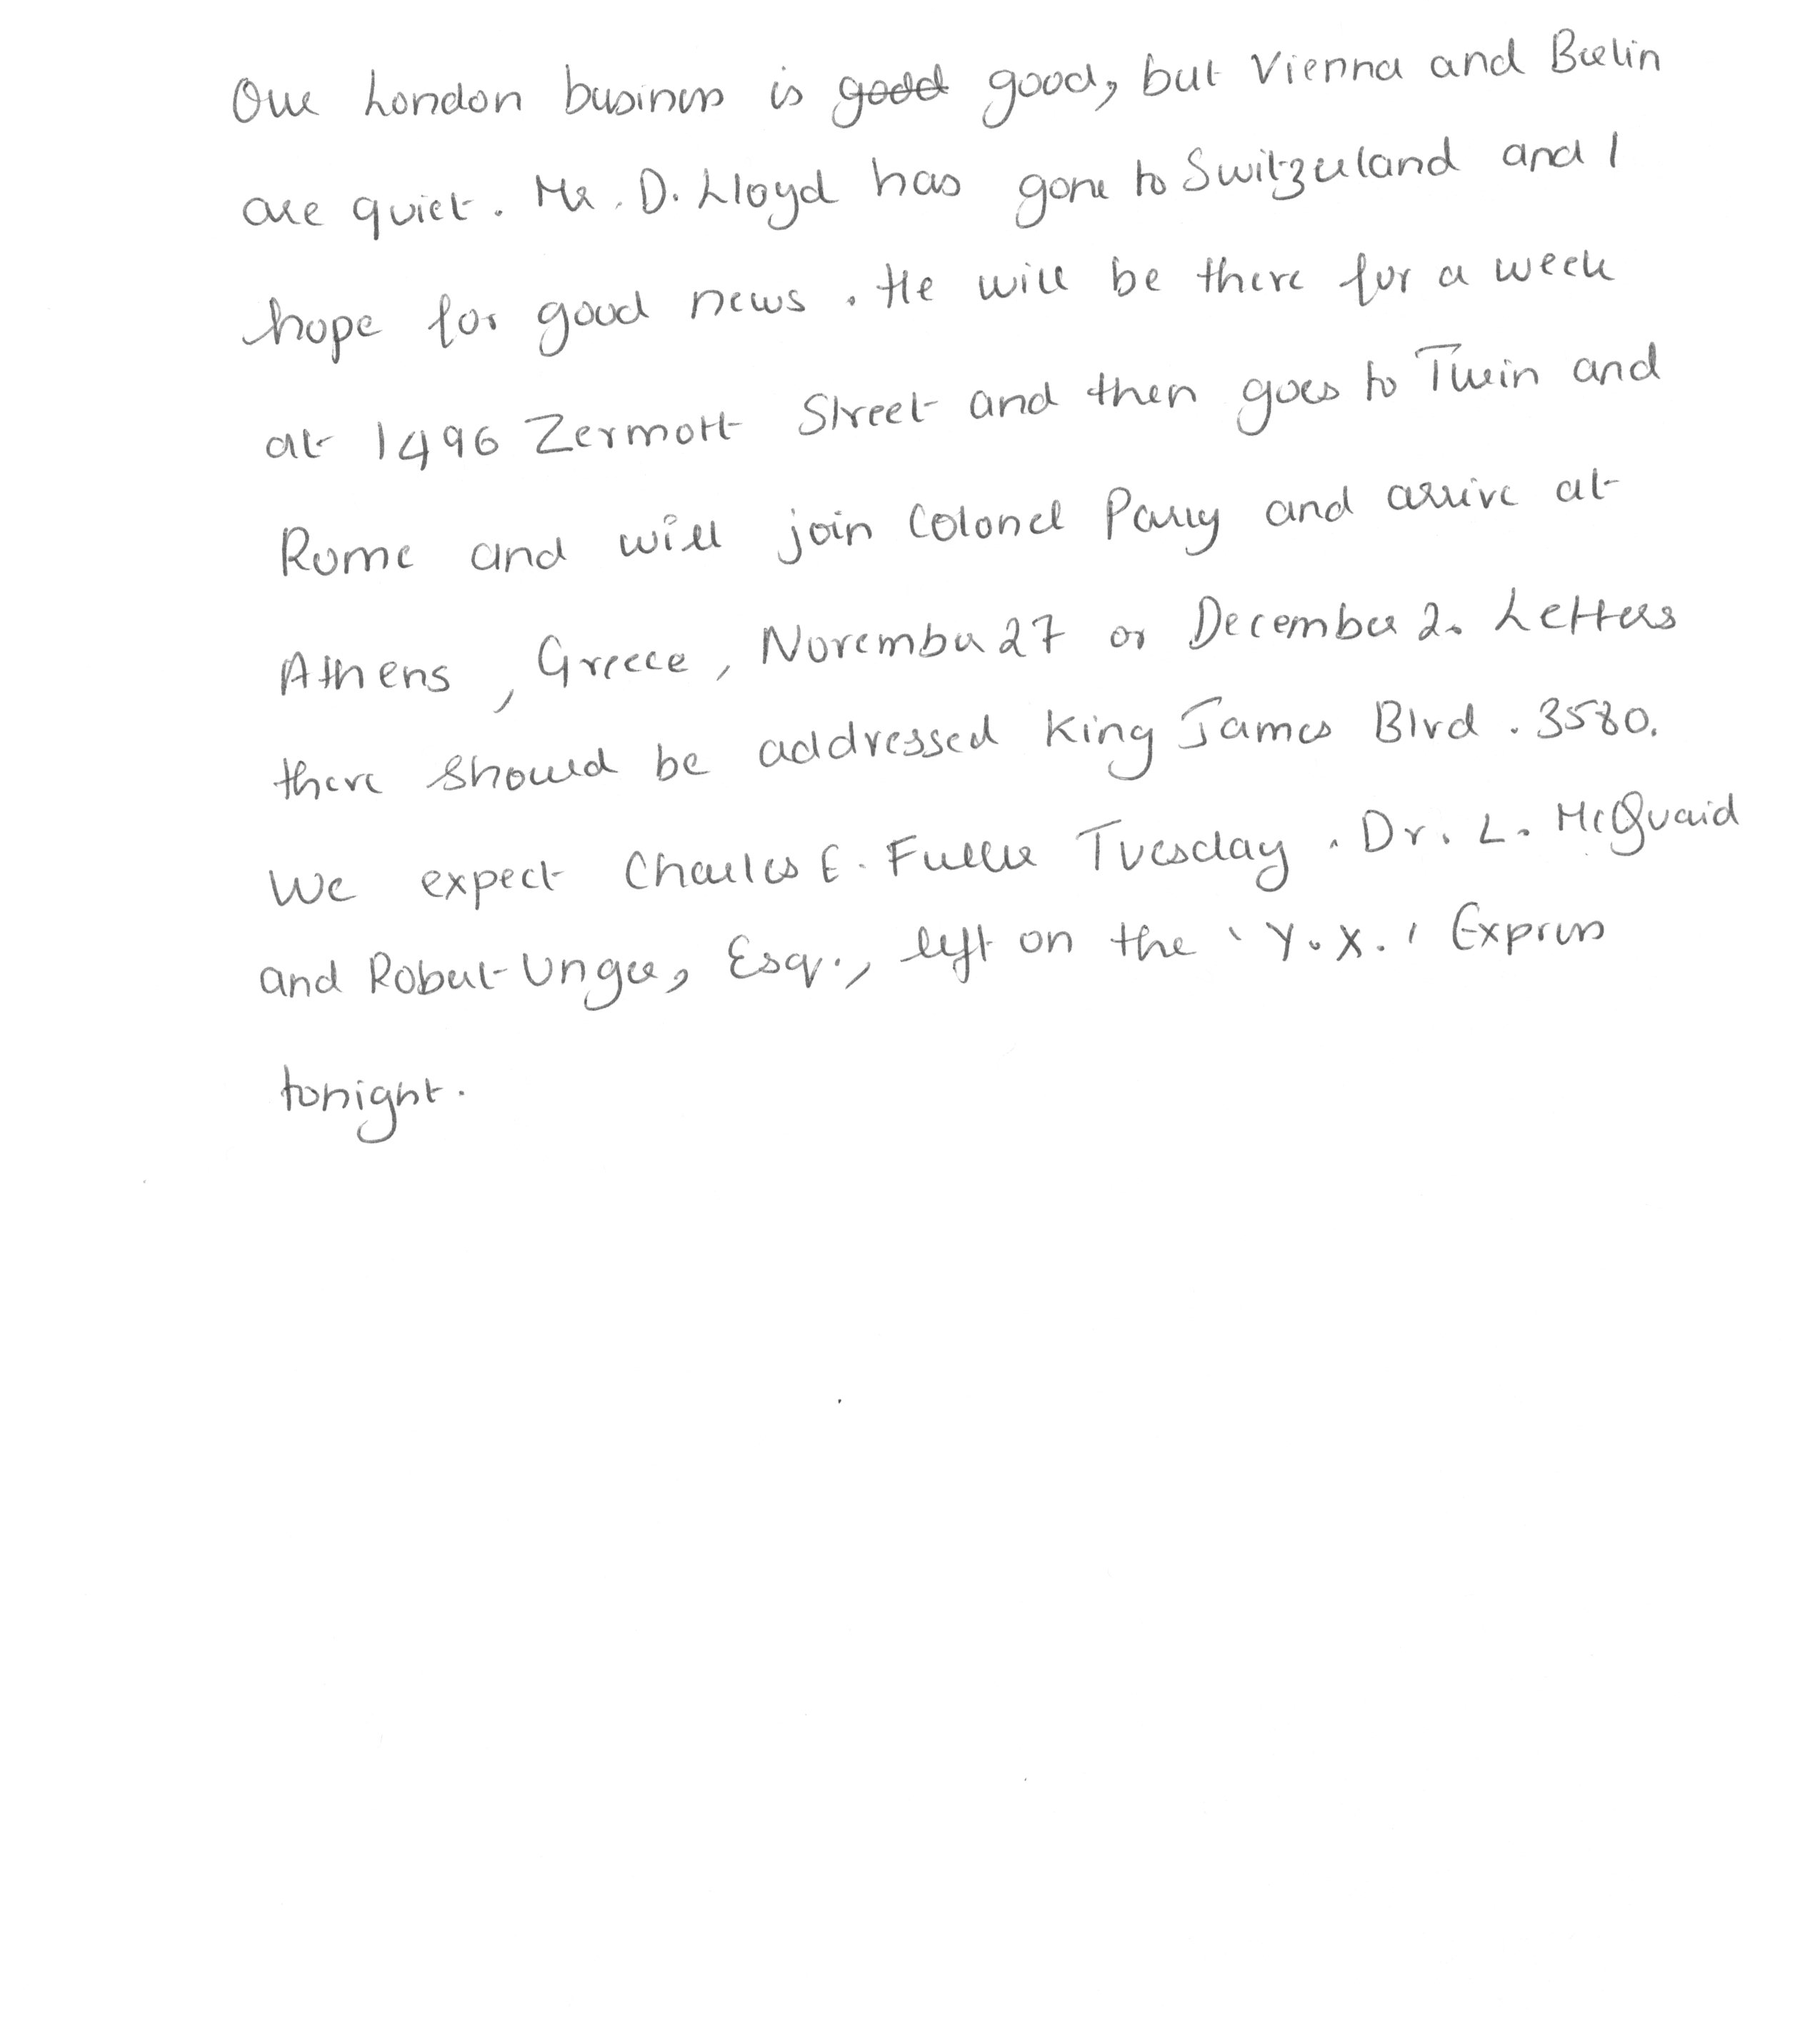 Our London business is good good, but Vienna and Berlin
are quiet. Mr. D. Lloyd has gone to Switzerland and I
hope for good news. He will be there for a week
at 1496 Zermott Street and then goes to Turin and
Rome and will join Colonel Parry and arrive at
Athens, Greece, November 27 or December 2. Letters
there should be addressed King James Blvd. 3580.
We expect Charles E. Fuller Tuesday. Dr. L. McQuaid
and Robert Unger, Esq., left on the 'Y.X.' Express
tonight.